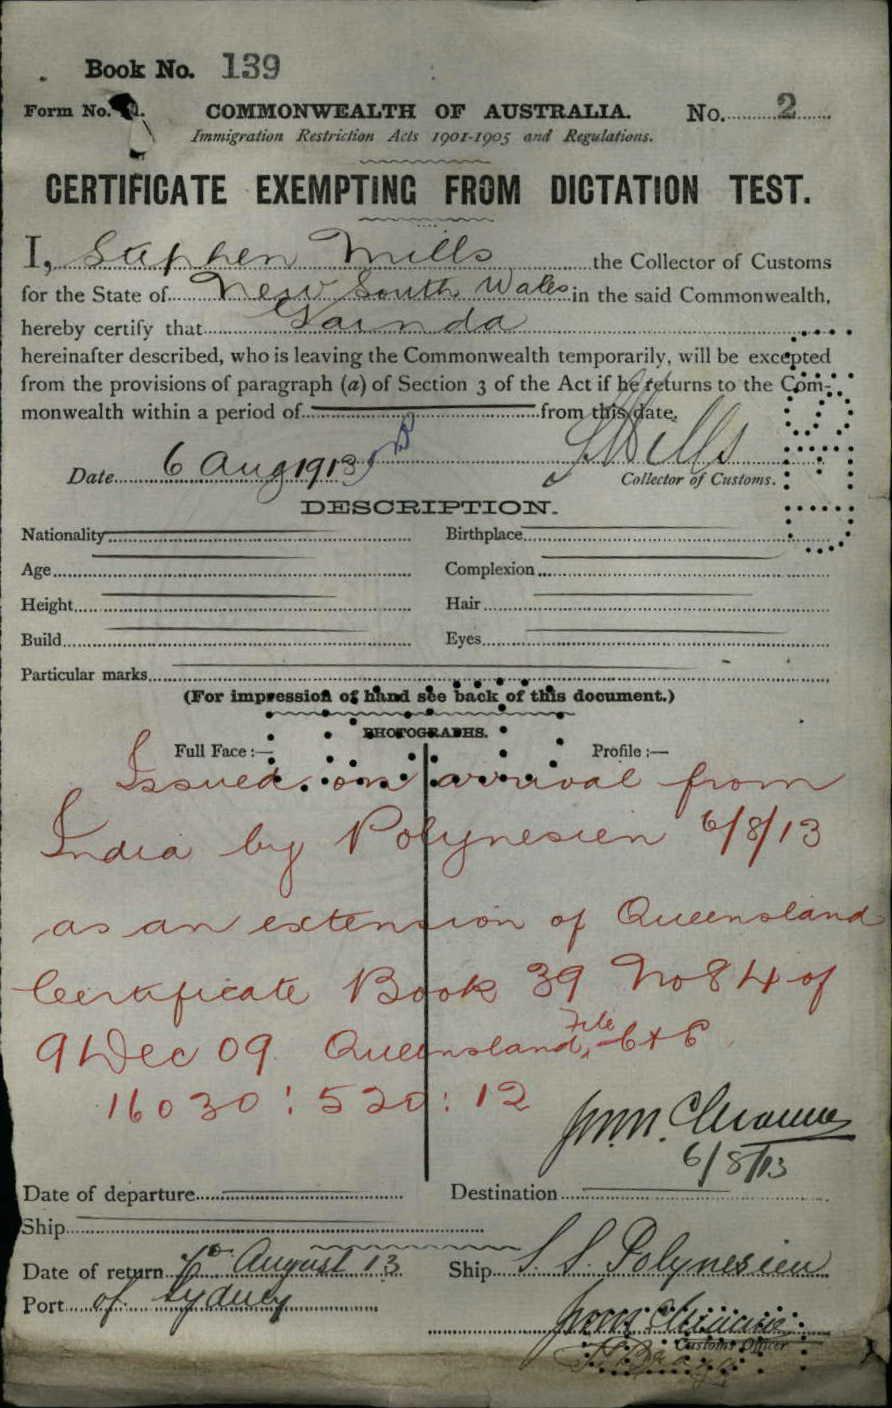 Book No. 139
Form No.
COMMONWEALTH OF AUSTRALIA. No. 2
Immigration Restriction Acts 1901-1905 and Regulations.
CERTIFICATE EXEMPTING FROM DICTATION TEST.
I, Stephen Mills the Collector of Customs
for the State of New South Wales in the said Commonwealth,
hereby certify that Gainda
hereinafter described, who is leaving the Commonwealth temporarily, will be excepted
from the provisions of paragraph (a) of Section 3 of the Act if he returns to the Com-
monwealth within a period of from this date.
Date 6 Aug 1913 S Mills
Collector of Customs.
DESCRIPTION.
Nationality Birthplace
Age Complexion
Height Hair
Build Eyes
Particular marks
(For impression of hand see back of this document.)
PHOTOGRAPHS.
Full Face :— Profile :—
Issued on arrival from
India by Polynesien 6/8/13
as an extension of Queensland
Certificate Book 39 No 84 of
9 Dec 09. Queensland File C+E
16030 : 520 : 12
6/8/13
Date of departure Destination
Ship
Date of return 6th August 13 Ship S. S. Polynesien
Port of Sydney
Customs Officer